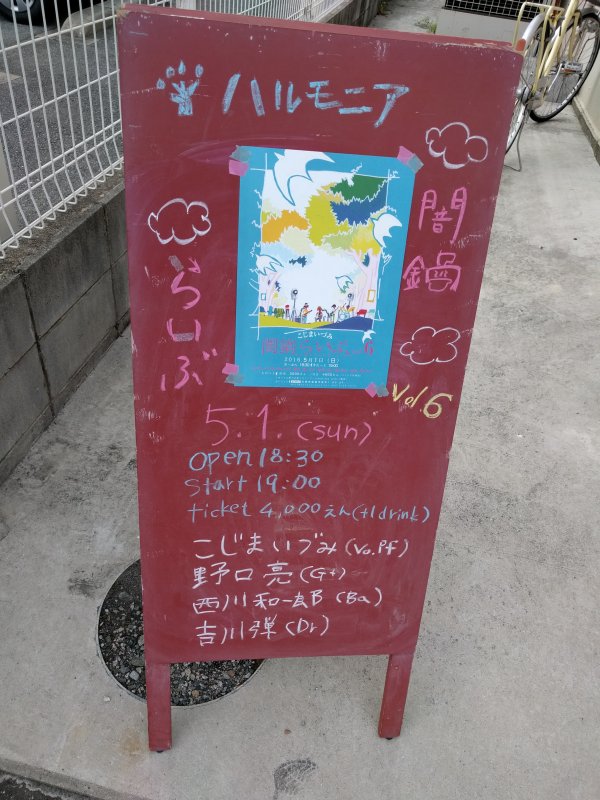 ハルモニア
闇鍋
らいぶ
vol.6
こじまいづみ
2016.5月1日(日)
5.1.(sun)
open 18:30
start 19:00
ticket 4,000えん(+1drink)
こじまいづみ(Vo.Pf)
野口亮(Gt)
西川和一郎(Ba)
吉川弾(Dr)